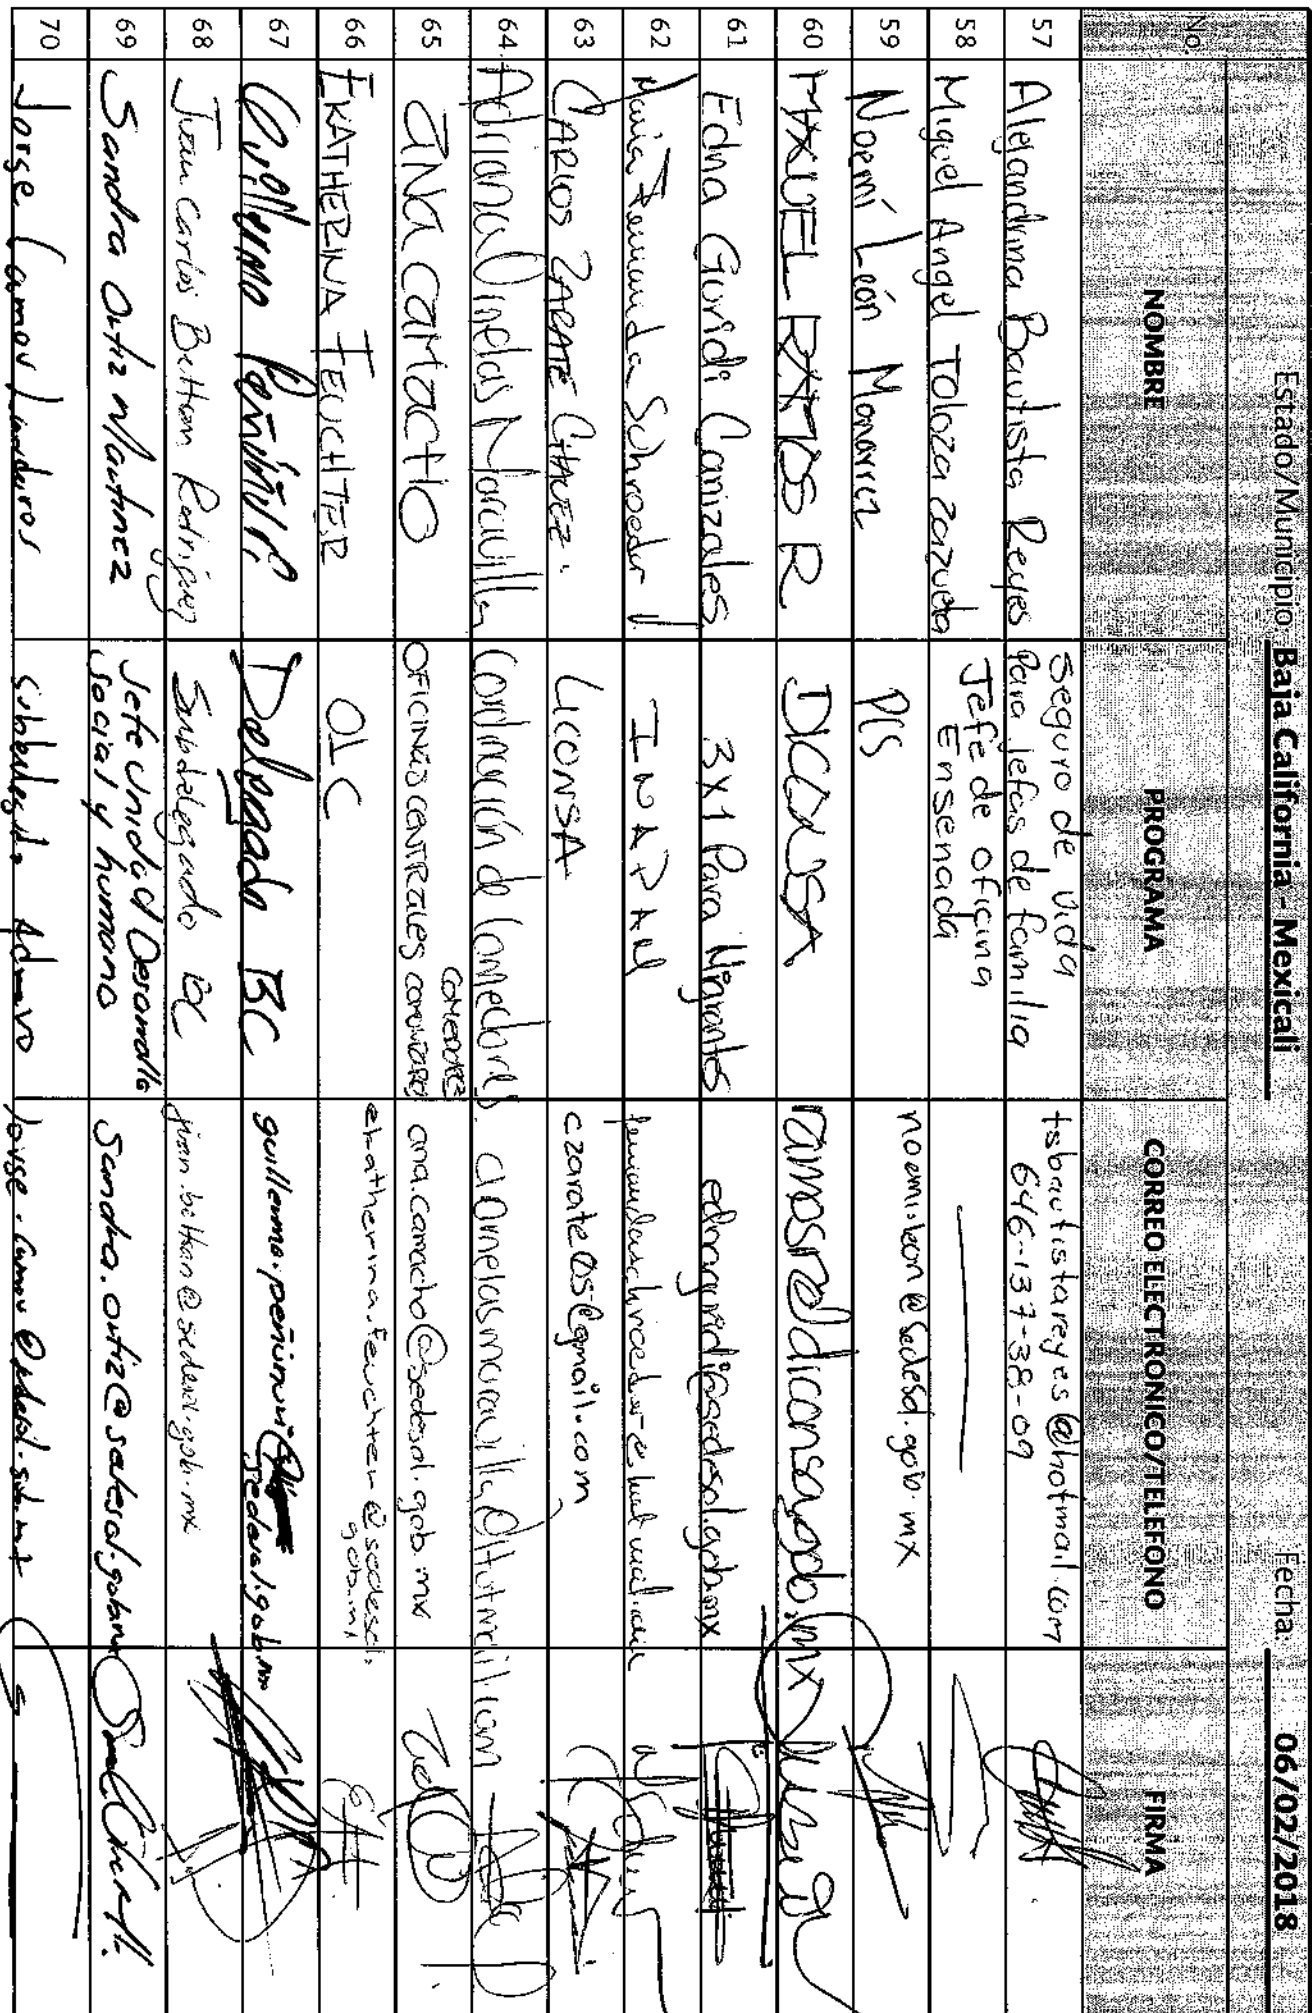 Estado/Municipio: Baja California - Mexicali Fecha: 06/02/2018
No. NOMBRE PROGRAMA CORREO ELECTRONICO/TELEFONO FIRMA
57 Alejandrina Bautista Reyes Seguro de vida para jefas de familia tsbautistareyes@hotmail.com 646-137-38-09
58 Miguel Angel Toloza Zazueta Jefe de oficina Ensenada
59 Noemí León Monarrez PCS noemi.leon@sedesol.gob.mx
60 MXNUEL RXMOS R DICONSA
61 Edna Guridi Canizales 3x1 Para Migrantes ednaguridi@sedesol.gob.mx
62 Schroeder INAPAM
63 CARlOS ZARATE CHAVEZ. LICONSA czarate05@gmail.com
64 Adriana Ornelas Maravilla Cordinación de Comedores. aornelasmaravilla@Hotmail.com
65 ANa CaMacHO OFICINAS CENTRALES COMEDORES ana.camacho@sedesol.gob.mx
66 EKATHERINA FEUCHTER OIC ekatherina.feuchter@sedesol.gob.mx
67 Guillermo Peñúñuri Delegado BC guillermo.peñunuri@ sedesol.gob.mx
68 Juan Carlos Beltran Rodríguez Subdelegado BC juan.beltran@sedesol.gob.mx
69 Sandra Ortiz Martinez Jefe Unidad Desarrollo Social y humano sandra.ortiz@sedesol.gob.mx
70 Jorge